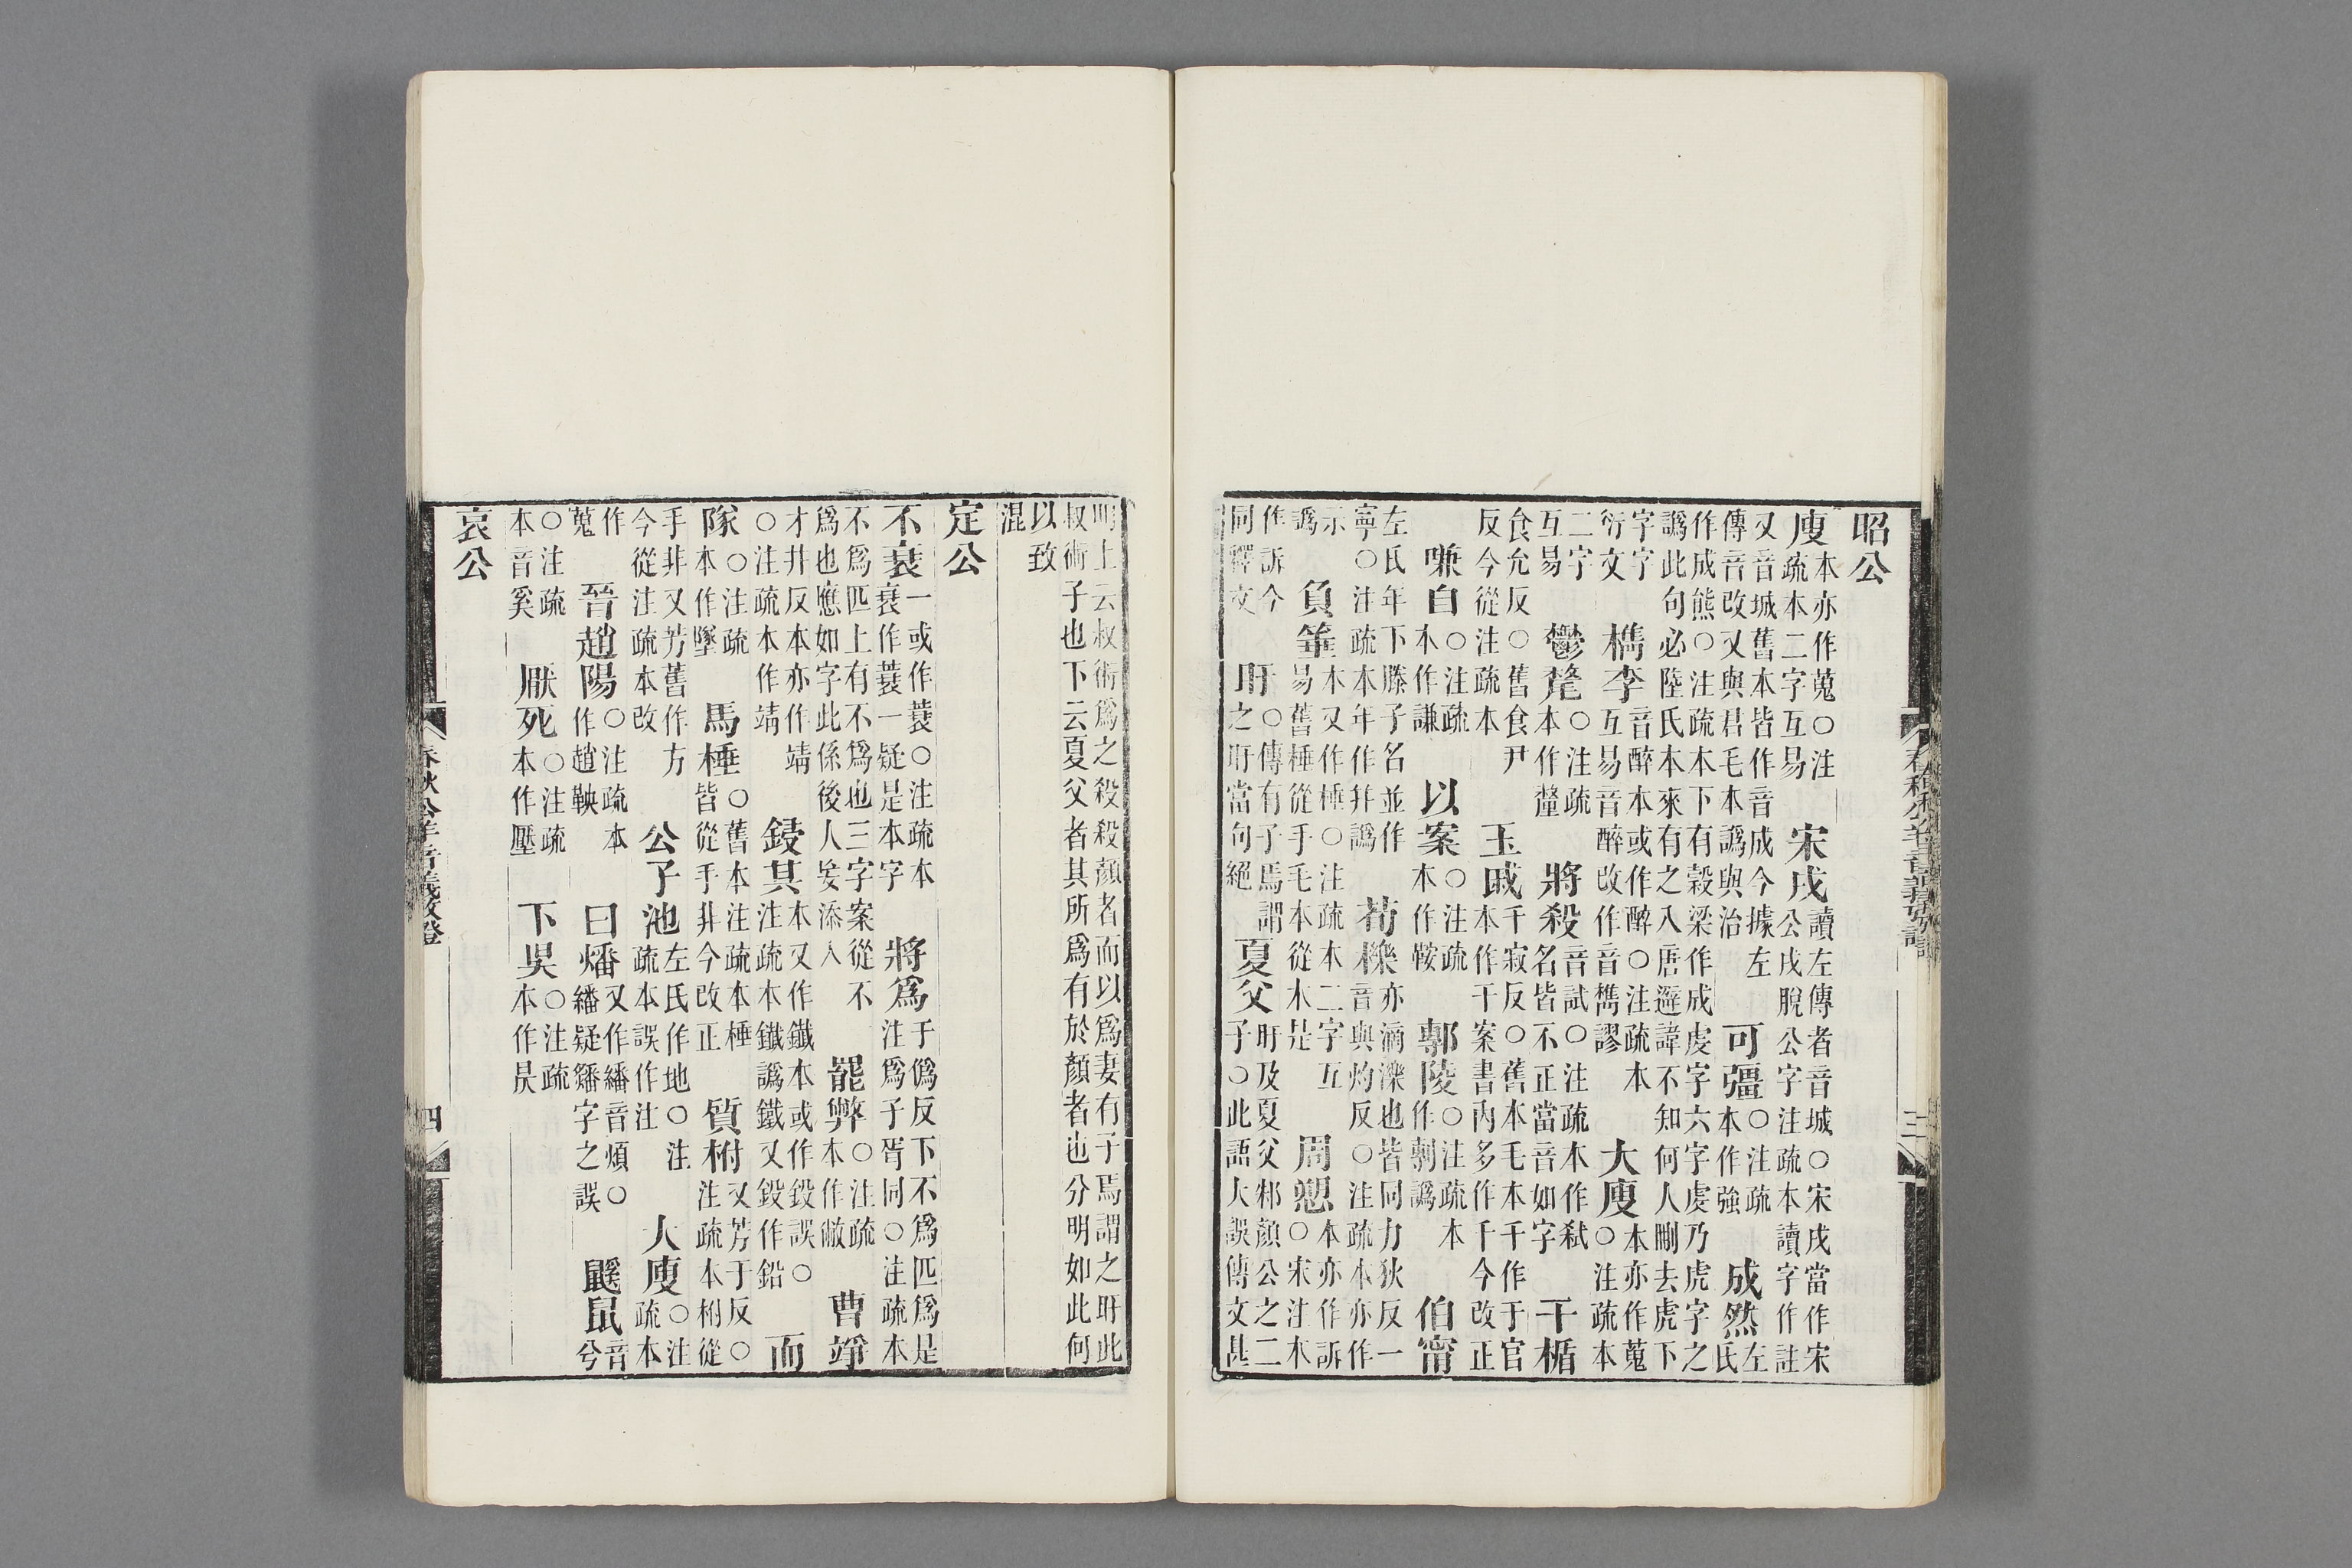 昭公
廋
本亦作蒐○注
疏本二字互易
宋戌
讀左傳者音城○宋戌當作宋
公戌脫公字注疏本讀字作註
又音城舊本皆作音成今據左
傳音改又與君毛本譌與治
可彊
○注疏
本作強
成然
左
氏
作成熊○注疏本下有穀梁作成虔字六字虔乃虎字之
譌此句必陸氏本來有之入唐避諱不知何人刪去虎下
字字
衍文
檇李
音醉本或作醉○注疏本
互易音醉改作音檇謬
大廋
本亦作蒐
○注疏本
二字
互易
鬱氂
○注疏
本作釐
將殺
音試○注疏本作弒
名皆不正當音如字
干楯
食允反○舊食尹
反今從注疏本
玉戚
千寂反○舊本毛本千作于官
本作干案書內多作千今改正
嗛自
○注疏
本作謙
以案
○注疏
本作鞍
鄟陵
○注疏本
作剸譌
伯甯
左氏年下滕子名並作
寧○注疏本年作幷譌
荀櫟
亦滴灤也皆同力狄反一
音與灼反○注疏本亦作
示
譌
負箠
本又作棰○注疏本二字互
易舊棰從手毛本從木是
周愬
本亦作訴
○宋注本
作訴今
同釋文
盱
○傳有子焉謂
之盱當句絕
夏父
盱及夏父邾顏公之二
子○此語大誤傳文甚
三
明上云叔術爲之殺殺顏者而以爲妻有子焉謂之盱此
叔術子也下云夏父者其所爲有於顏者也分明如此何
以致
混
定公
不衰
一或作蓑○注疏本
衰作蓑一疑是本字
將爲
于僞反下不爲匹爲是
注爲子胥同○注疏本
不爲匹上有不爲也三字案從不
爲也應如字此係後人妄添入
罷弊
○注疏
本作敝
曹竫
才井反本亦作靖
○注疏本作靖
鋟其
本又作鐵本或作鋟誤○
注疏本鐵譌鐵又鋟作鉛
而
隊
○注疏
本作墜
馬棰
○舊本注疏本棰
皆從手非今改正
質柎
又芳于反○
注疏本柎從
手非又芳舊作方
今從注疏本改
公子池
左氏作地○注
疏本誤作注
大廋
○注
疏本
作
蒐
晉趙陽
○注疏本
作趙鞅
曰燔
又作繙音煩○
繙疑䊩字之誤
鼷鼠
音
兮
○注疏
本音奚
厭死
○注疏
本作壓
下吳
○注疏
本作昃
哀公
春秋公羊音義攷證
四